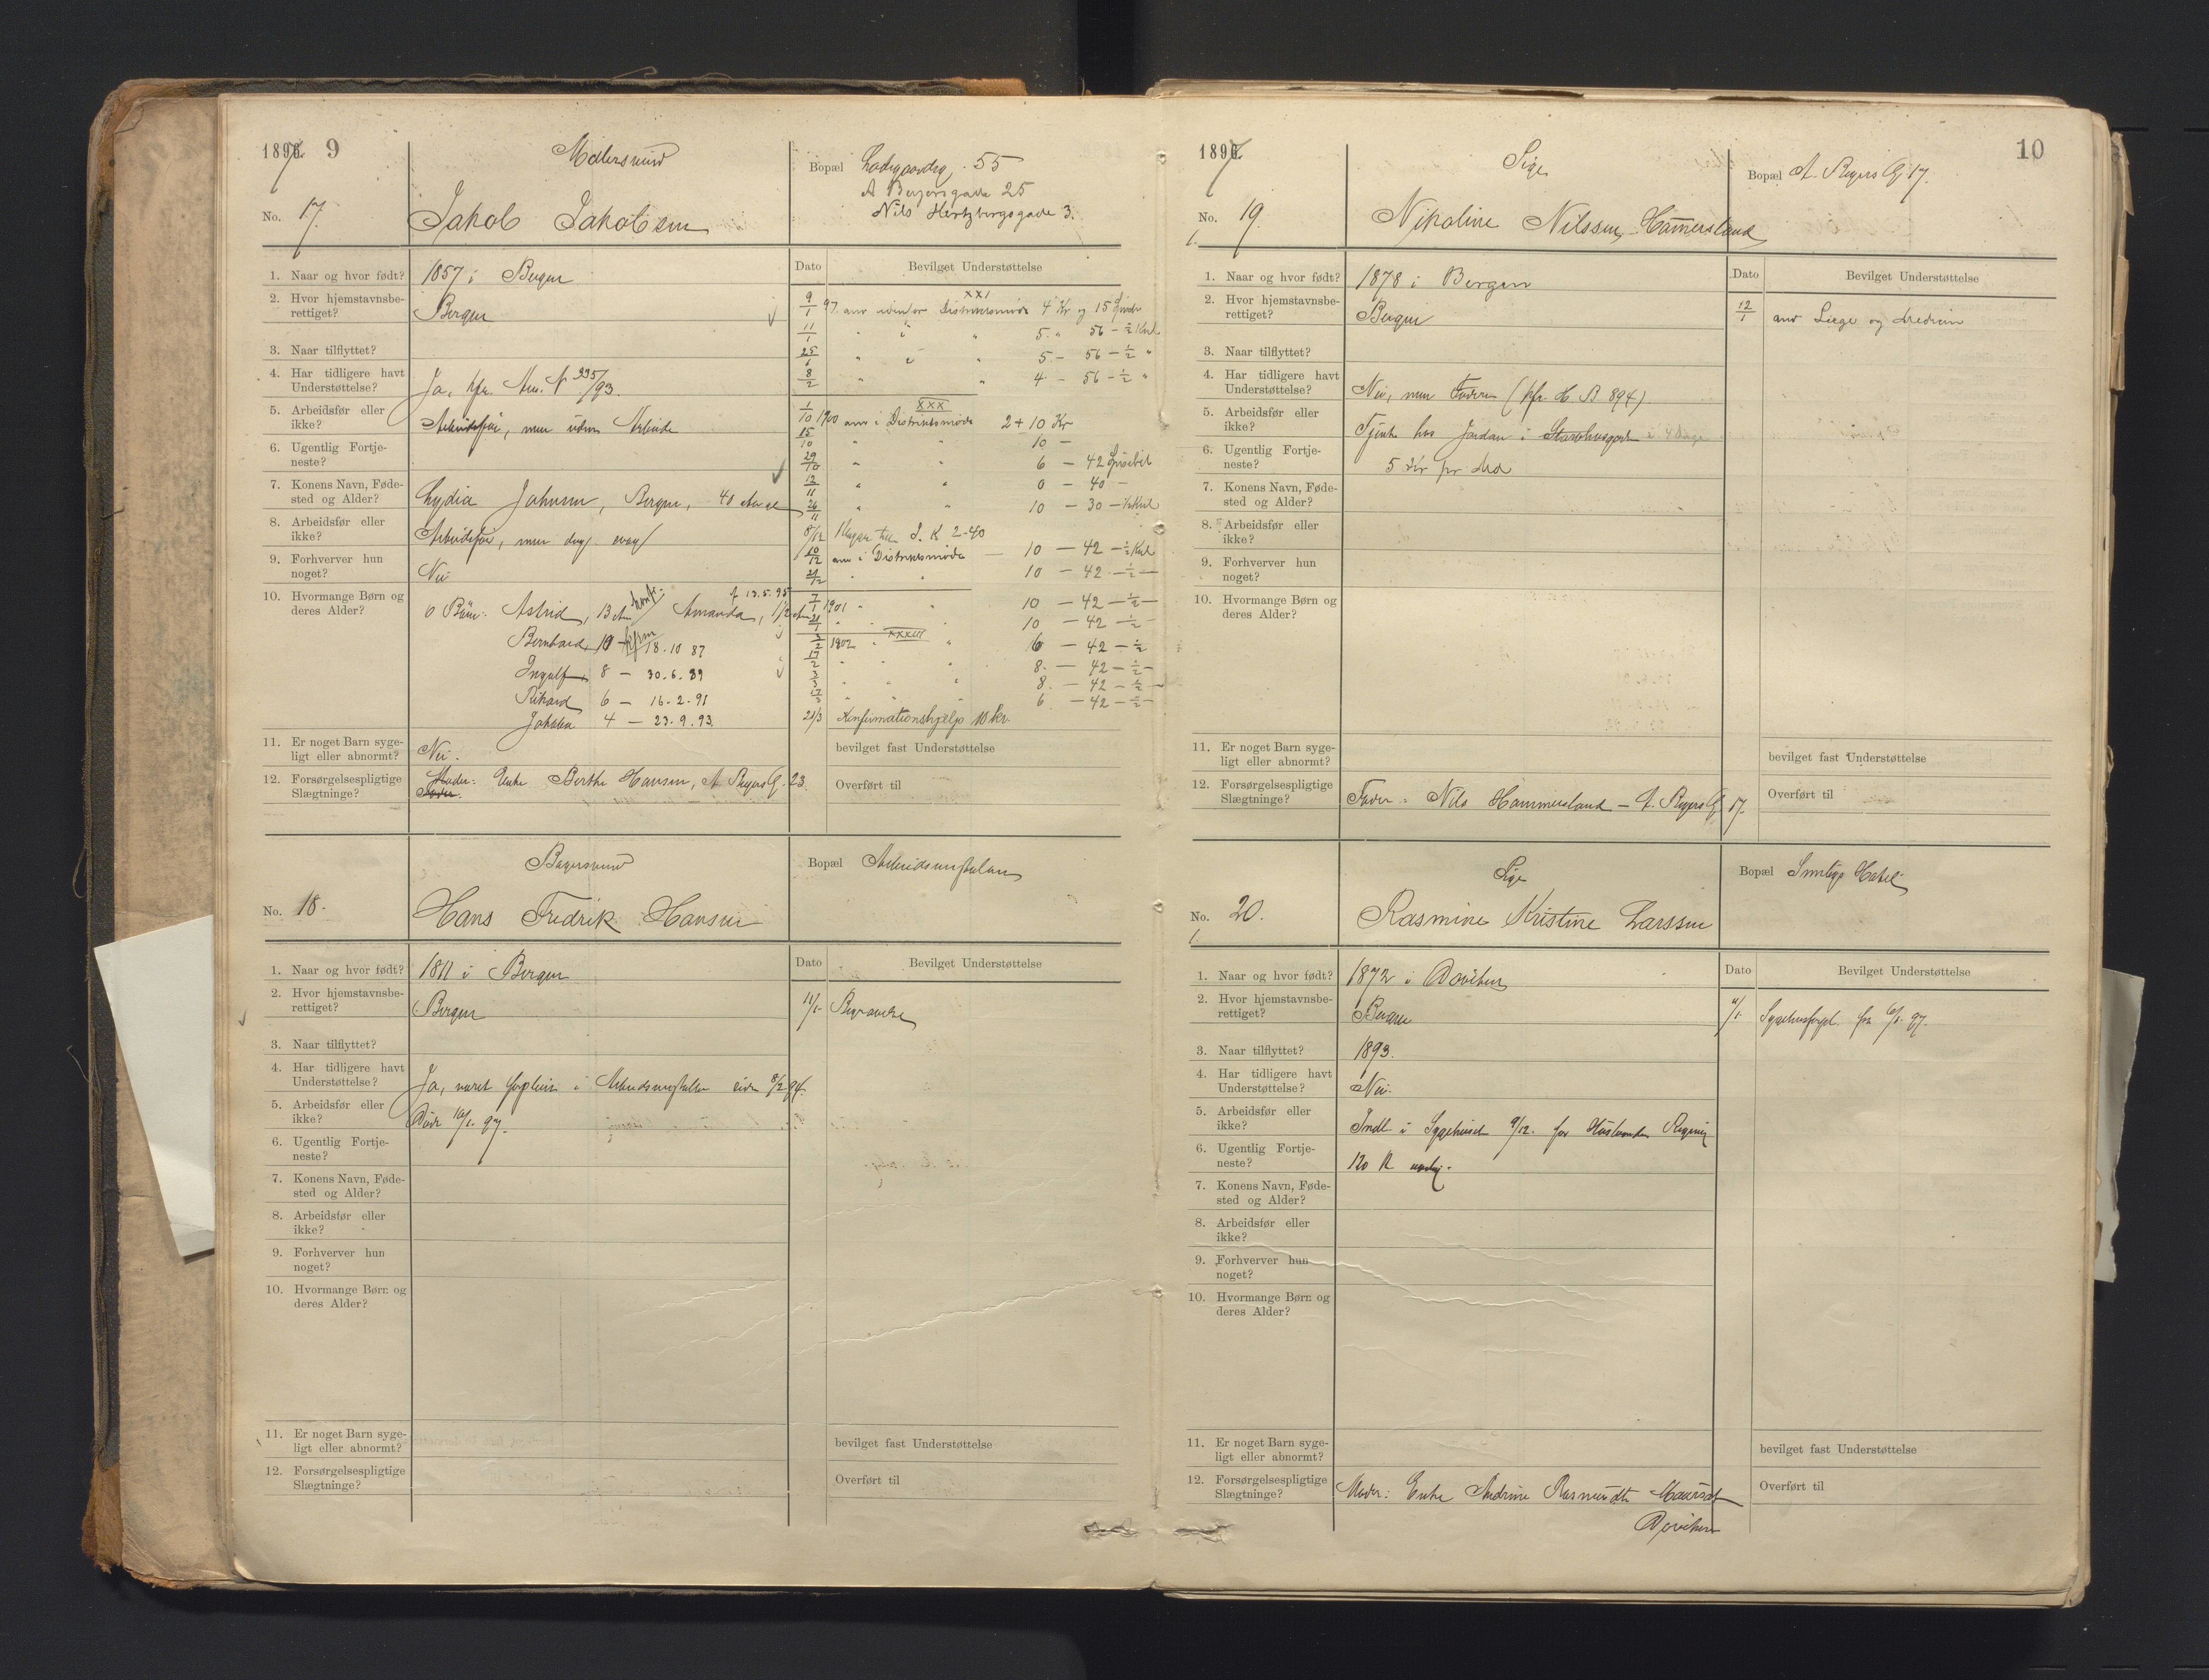 1897. 9
Bopæl Ladegaardsg. 55
A Beyersgade 25
Nils Hertzbergsgade 3.
No. 17.
Jakob Jakobsen
1. Naar og hvor født? 1857 i Bergen
2. Hvor hjemstavnsbe-
rettiget? Bergen
3. Naar tilflyttet?
4. Har tidligere havt
Understøttelse? Ja, kfr. Am. N 335/93.
5. Arbeidsfør eller
ikke? Arbeidsfør, men uden Arbeide
6. Ugentlig Fortje-
neste?
7. Konens Navn, Føde-
sted og Alder? Lydia Johnsen, Bergen, 40 Aar
8. Arbeidsfør eller
ikke? Arbeidsfør, men svag
9. Forhverver hun
noget? Nei
10. Hvormange Børn og
deres Alder? 6 Børn: Astrid, 13 Aar konf. Amanda, 1½ Aar f 13.5.95
Bernhard, 10 - kfm 18.10 87
Ingolf 8 - 30.6.89
Rikard 6 - 16-2-91
Johan 4 - 23.9.93
11. Er noget Barn syge-
ligt eller abnormt? Nei.
12. Forsørgelsespligtige
Slægtninge? Moder: Enke Berthe Hansen, A Beyers G. 23.
Dato Bevilget Understøttelse
XXI
9/1 97 anv udenfor Distriktsmøde 4 Kr og 15
11/1 " " 5 " 56 - ½ Kul
25/1 " " 5 - 56 - ½ "
8/2 " " 4 - 56 - ½ "
XXX
1/10 1900 anv i Distriktsmøde 2 + 10 Kr
15/10 " " 10 -
29/10 " " 6 - 42
12/11 " " 0 - 40 -
26/11 " " 10 - 30 - ½ Kul
8/12 2-40
10/12 anv i Distriktsmøde 10 - 42 - ½ Kul
21/12 " " 10 - 42 - ½ -
7/1 1901 " " 10 - 42 - ½ -
21/1 " " 10 - 42 - ½ -
XXXIII
3/2 1902 " " 6 - 42 - ½
17/2 " " 8 - 42 - ½ -
3/3 " " 8 - 42 - ½ -
17/3 " " 6 - 42 - ½ -
21/3 Konfirmationshjelp 10 kr.
bevilget fast Understøttelse
Overført til
Bopæl Arbeidsanstalten
No. 18.
Hans Fredrik Hansen
1. Naar og hvor født? 1811 i Bergen
2. Hvor hjemstavnsbe-
rettiget? Bergen
3. Naar tilflyttet?
4. Har tidligere havt
Understøttelse? Ja, været forpleiet i Arbeidsanstalten siden 8/2 94.
5. Arbeidsfør eller
ikke? Døde 10/1. 97.
6. Ugentlig Fortje-
neste?
7. Konens Navn, Føde-
sted og Alder?
8. Arbeidsfør eller
ikke?
9. Forhverver hun
noget?
10. Hvormange Børn og
deres Alder?
11. Er noget Barn syge-
ligt eller abnormt?
12. Forsørgelsespligtige
Slægtninge?
Dato Bevilget Understøttelse
11/1 Begravelse
bevilget fast Understøttelse
Overført til
1897. 10
Pige
Bopæl A. Beyers G 17.
No. 19.
1.
Nikoline Nilssen Hammersland
1. Naar og hvor født? 1878 i Bergen
2. Hvor hjemstavnsbe-
rettiget? Bergen
3. Naar tilflyttet?
4. Har tidligere havt
Understøttelse? Nei, men Faderen (kfr. H. B 894).
5. Arbeidsfør eller
ikke? Tjente hos Jordan i
6. Ugentlig Fortje-
neste? 5 Kr pr Md
7. Konens Navn, Føde-
sted og Alder?
8. Arbeidsfør eller
ikke?
9. Forhverver hun
noget?
10. Hvormange Børn og
deres Alder?
11. Er noget Barn syge-
ligt eller abnormt?
12. Forsørgelsespligtige
Slægtninge? Fader: Nils Hammersland - A. Beyers G 17.
Dato Bevilget Understøttelse
12/1 anv Læge og Medicin
bevilget fast Understøttelse
Overført til
Pige
Bopæl Hotel
No. 20.
1.
Rasmine Kristine Larssen
1. Naar og hvor født? 1872 i Daviken
2. Hvor hjemstavnsbe-
rettiget? Bergen
3. Naar tilflyttet? 1893.
4. Har tidligere havt
Understøttelse? Nei.
5. Arbeidsfør eller
ikke? Indl. i Sygehuset 9/12. for Husbondens Regning
6. Ugentlig Fortje-
neste? 120 K aarlig.
7. Konens Navn, Føde-
sted og Alder?
8. Arbeidsfør eller
ikke?
9. Forhverver hun
noget?
10. Hvormange Børn og
deres Alder?
11. Er noget Barn syge-
ligt eller abnormt?
12. Forsørgelsespligtige
Slægtninge? Moder: Enke Andrine Rasmusdtr
Daviken
Dato Bevilget Understøttelse
11/1. Sygehusforpl. fra 6/1. 97.
bevilget fast Understøttelse
Overført til